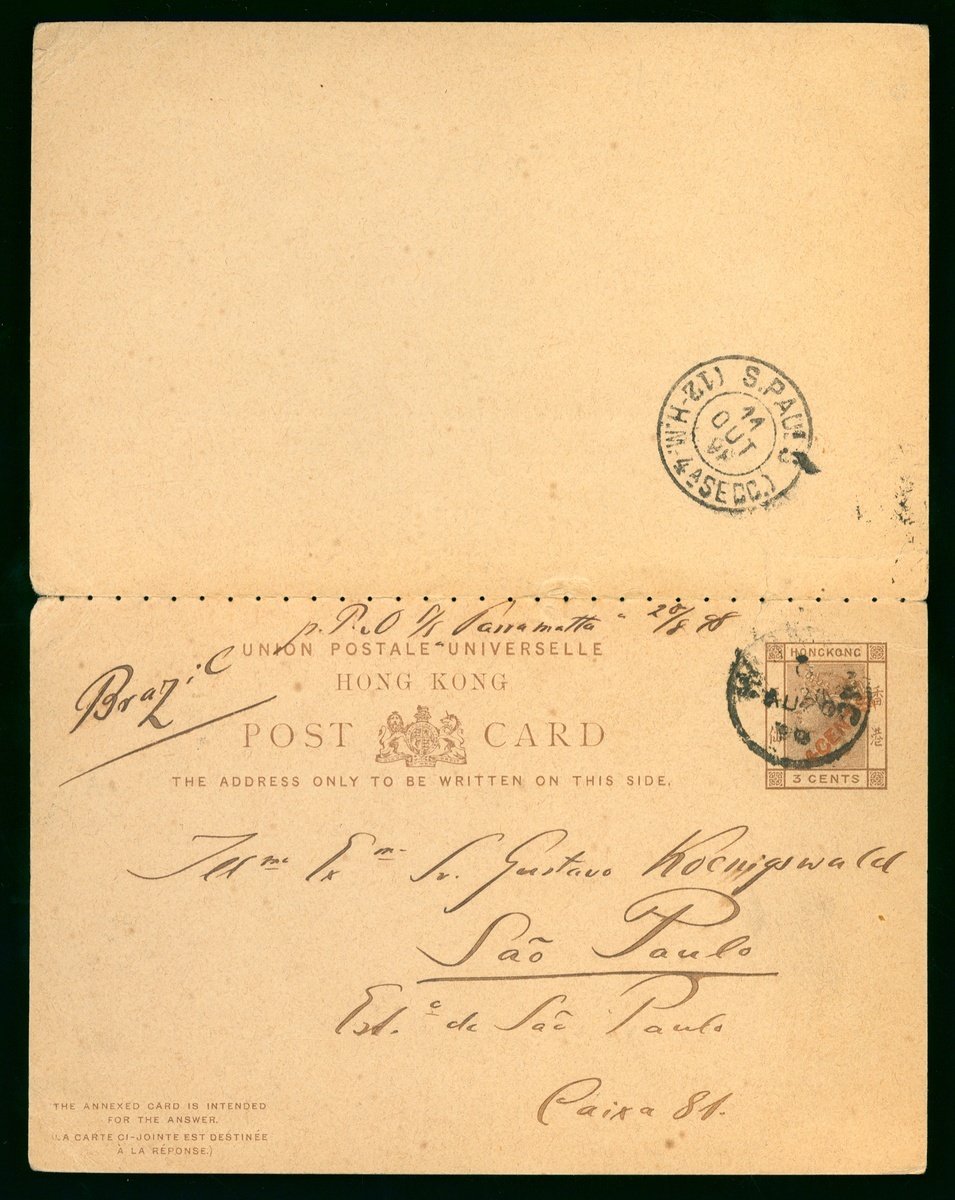 S. PAULO
(12-H.M.
11
OUT
4ASECC.)
p. P&O S/S "Parramatta" 20/8 98
Brazil
UNION POSTALE UNIVERSELLE
HONG KONG
POST CARD
THE ADDRESS ONLY TO BE WRITTEN ON THIS SIDE.
HONGKONG
香港
3 CENTS
AU 20
98
Illmo Exmo Sr. Gustavo Koenigswald
São Paulo
Esto de São Paulo
Caixa 81.
THE ANNEXED CARD IS INTENDED
FOR THE ANSWER.
(LA CARTE CI-JOINTE EST DESTINÉE
À LA RÉPONSE.)